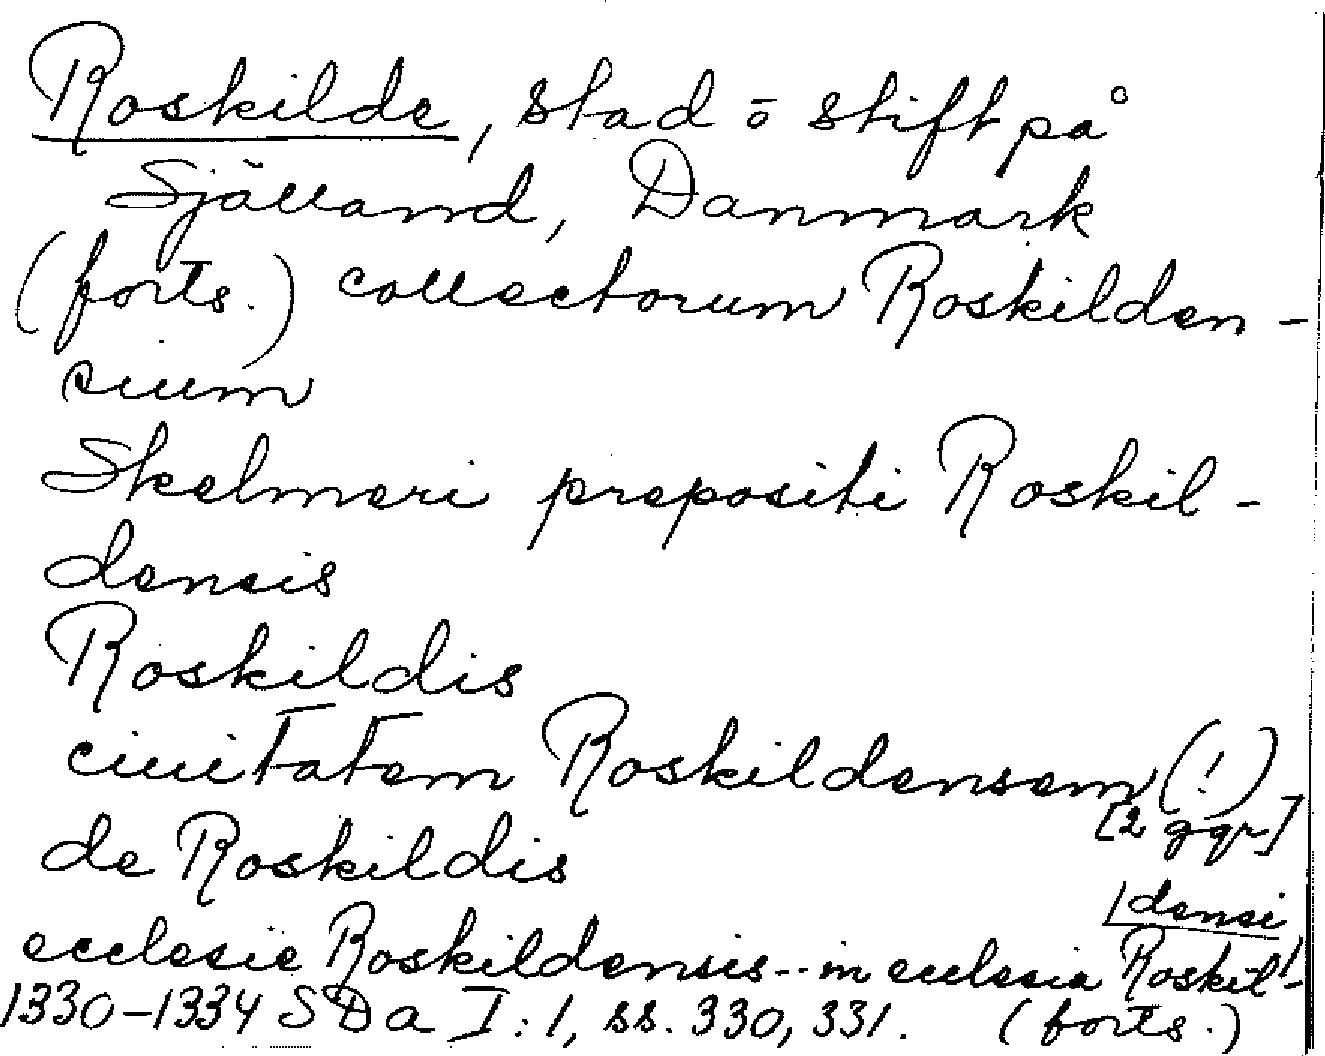 Roskilde, stad o stift på
Sjælland, Danmark
(forts.) collectorum Roskilden-
cium
Skelmeri prepositi Roskil-
densis
Roskildis
ciuitatem Roskildensem (!)
[2 ggr]
de Roskildis
ecclesie Roskildensis -- in ecclesia Roskil-
densi
1330-1334 SDa I:1, ss. 330, 331. (forts.)